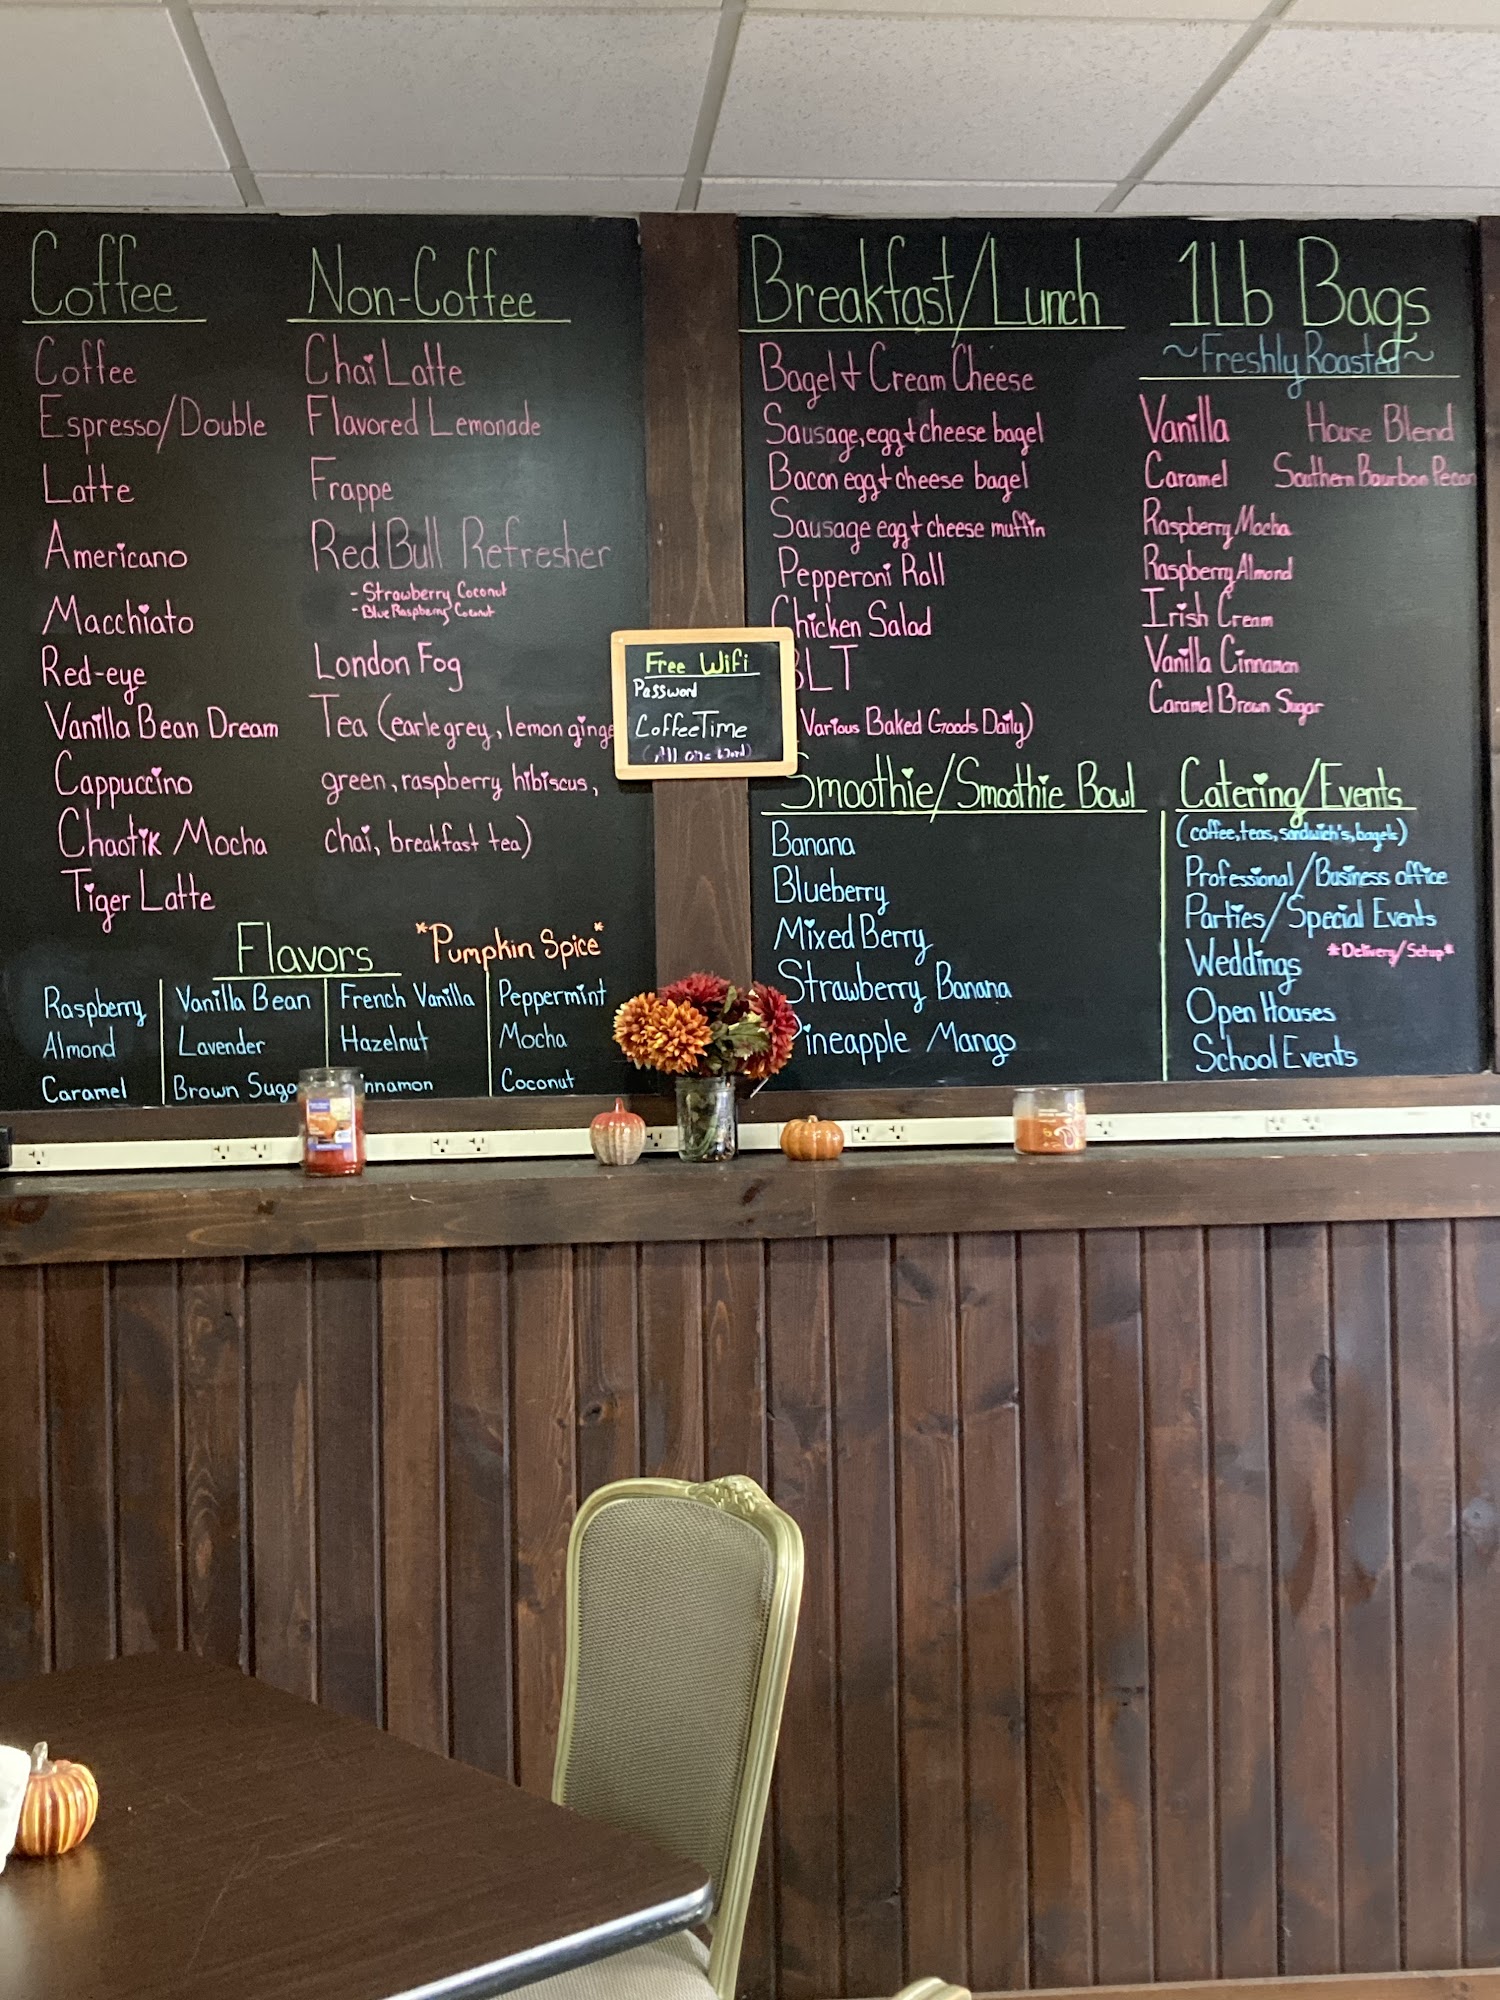 Coffee
Coffee
Espresso/Double
Latte
Americano
Macchiato
Red-eye
Vanilla Bean Dream
Cappuccino
Chaotik Mocha
Tiger Latte
Non-Coffee
Chai Latte
Flavored Lemonade
Frappe
Red Bull Refresher
- Strawberry Coconut
- Blue Raspberry Coconut
London Fog
Tea (earle grey, lemon ginge
green, raspberry hibiscus,
chai, breakfast tea)
Flavors
*Pumpkin Spice*
Raspberry
Almond
Caramel
Vanilla Bean
Lavender
Brown Suga
French Vanilla
Hazelnut
nnamon
Peppermint
Mocha
Coconut
Free Wifi
Password
CoffeeTime
(All one word)
Breakfast/Lunch
Bagel + Cream Cheese
Sausage, egg + cheese bagel
Bacon egg + cheese bagel
Sausage egg + cheese muffin
Pepperoni Roll
Chicken Salad
BLT
Various Baked Goods Daily)
Smoothie/Smoothie Bowl
Banana
Blueberry
Mixed Berry
Strawberry Banana
Pineapple Mango
1Lb Bags
~Freshly Roasted~
Vanilla
Caramel
Raspberry Mocha
Raspberry Almond
Irish Cream
Vanilla Cinnamon
Caramel Brown Sugar
House Blend
Southern Bourbon Pecan
Catering/Events
(coffee, teas, sandwich's, bagels)
Professional/Business office
Parties/Special Events
Weddings *Delivery/Setup*
Open Houses
School Events